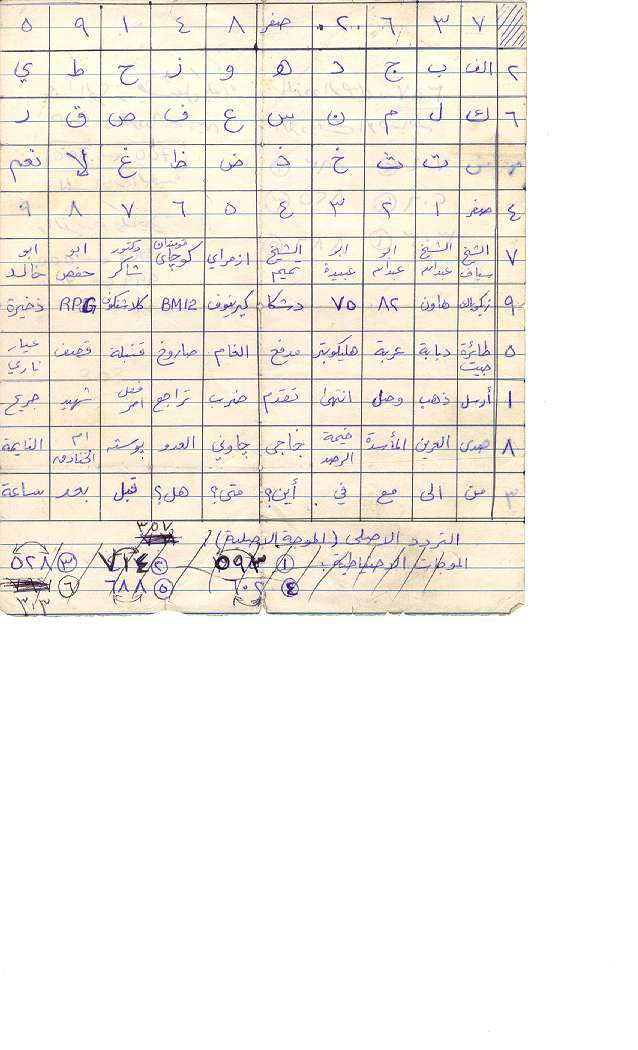 ٧ ٣ ٦ ٢٠ صفر ٨ ٤ ١ ٩ ٥
٢ الف ب ج د هـ و ز ح ط ي
٦ ك ل م ن س ع ف ص ق ر
ت ث خ ذ ض ظ غ لا نعم
٤ صفر ١ ٢ ٣ ٤ ٥ ٦ ٧ ٨ ٩
٧ الشيخ سياف الشيخ عبدالله ابو عبدالله ابو عبيدة الشيخ تميم ازمراي قومندان كوچاي دكتور شاكر ابو حفص ابو خالد
٩ زيكوياك هاون ٨٢ ٧٥ دشكا كيرينوف BM12 كلاشنكوف RPG ذخيرة
٥ طائرة جيت دبابة عربة هليكوبتر مدفع الغام صاروخ قنبلة قصف عيار ناري
١ أرسل ذهب وصل انتهى تقدم ضرب تراجع فعل أمر شهيد جريح
٨ صدى العرين المأسدة خيمة الرصد خاجي چاوني العدو پوسته ام الخنادق النايمة
٣ من الى مع في أين؟ متى؟ هل؟ قبل بعد ساعة
التردد الاصلي (الموجة الاصلية) ٣٥٧
الموجات الاحتياطية: ① ٥٩٣ ② ٧١٤ ③ ٥٢٨
④ ٦٠٢ ⑤ ٦٨٨ ⑥ ٣٠٣